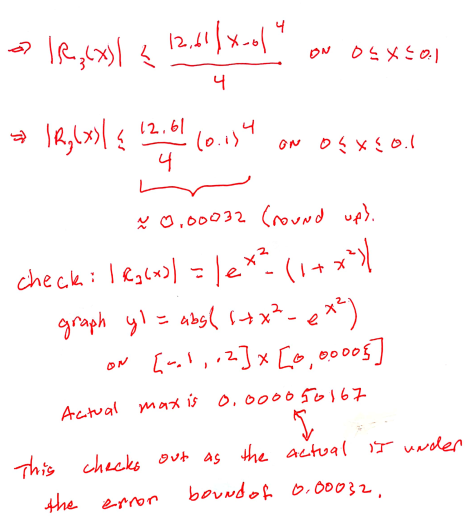 ⇒ |R₃(x)| ≤ 12.61|x-0|⁴ / 4 on 0 ≤ x ≤ 0.1
⇒ |R₃(x)| ≤ 12.61 / 4 (0.1)⁴ on 0 ≤ x ≤ 0.1
≈ 0.00032 (round up).
check: |R₃(x)| = |e^x² - (1+x²)|
graph y1 = abs(1+x² - e^x²)
on [-.1, .2] x [0, 0.0005]
Actual max is 0.000050167
This checks out as the actual is under
the error bound of 0.00032.